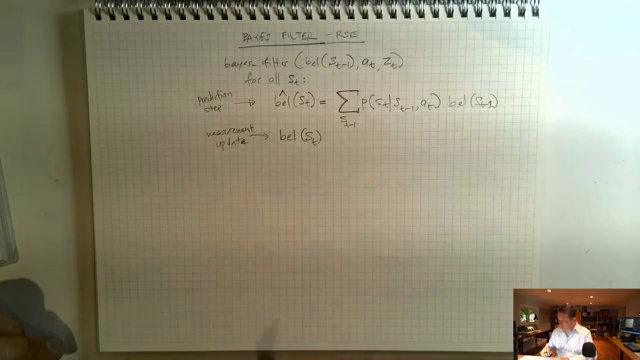 BAYES FILTER - RSE
bayes filter (bel(S_{t-1}), a_t, Z_t)
for all S_t:
prediction step → b̂el(S_t) = ∑_{S_{t-1}} p(S_t | S_{t-1}, a_t) bel(S_{t-1})
measurement update → bel(S_t)